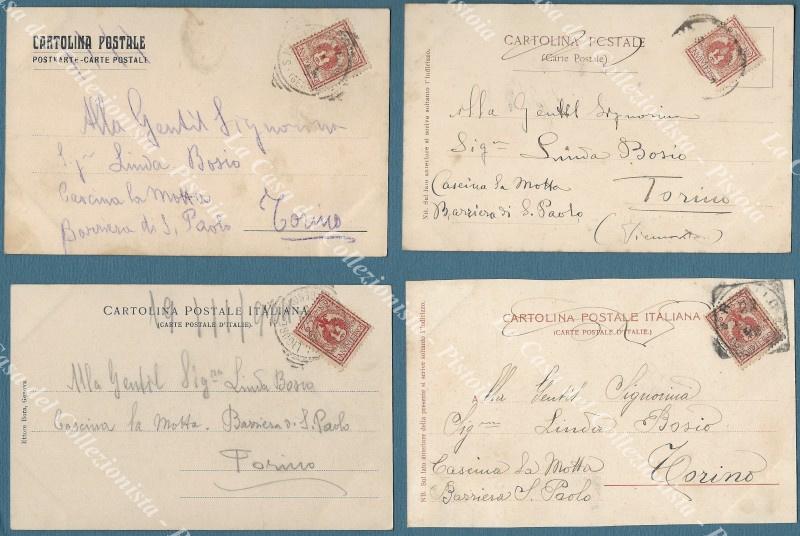 CARTOLINA POSTALE
POSTKARTE-CARTE POSTALE
Alla Gentil Signorina
Sigra Linda Bosio
Cascina la Motta
Barriera di S. Paolo
Torino
CARTOLINA POSTALE
(Carte Postale)
NB. Sul lato anteriore si scrive soltanto l'Indirizzo.
Alla Gentil Signorina
Sigra Linda Bosio
Cascina la Motta
Barriera di S. Paolo
Torino
(Piemonte)
CARTOLINA POSTALE ITALIANA
(CARTE POSTALE D'ITALIE)
Alla Gentil Sigra Linda Bosio
Cascina la Motta. Barriera di S. Paolo
Torino
CARTOLINA POSTALE ITALIANA
(CARTE POSTALE D'ITALIE.)
NB. Sul lato anteriore della presente si scrive soltanto l'Indirizzo.
Alla Gentil Signorina
Sigra Linda Bosio
Cascina la Motta
Barriera S. Paolo
Torino
La Casa del Collezionista - Pistoia